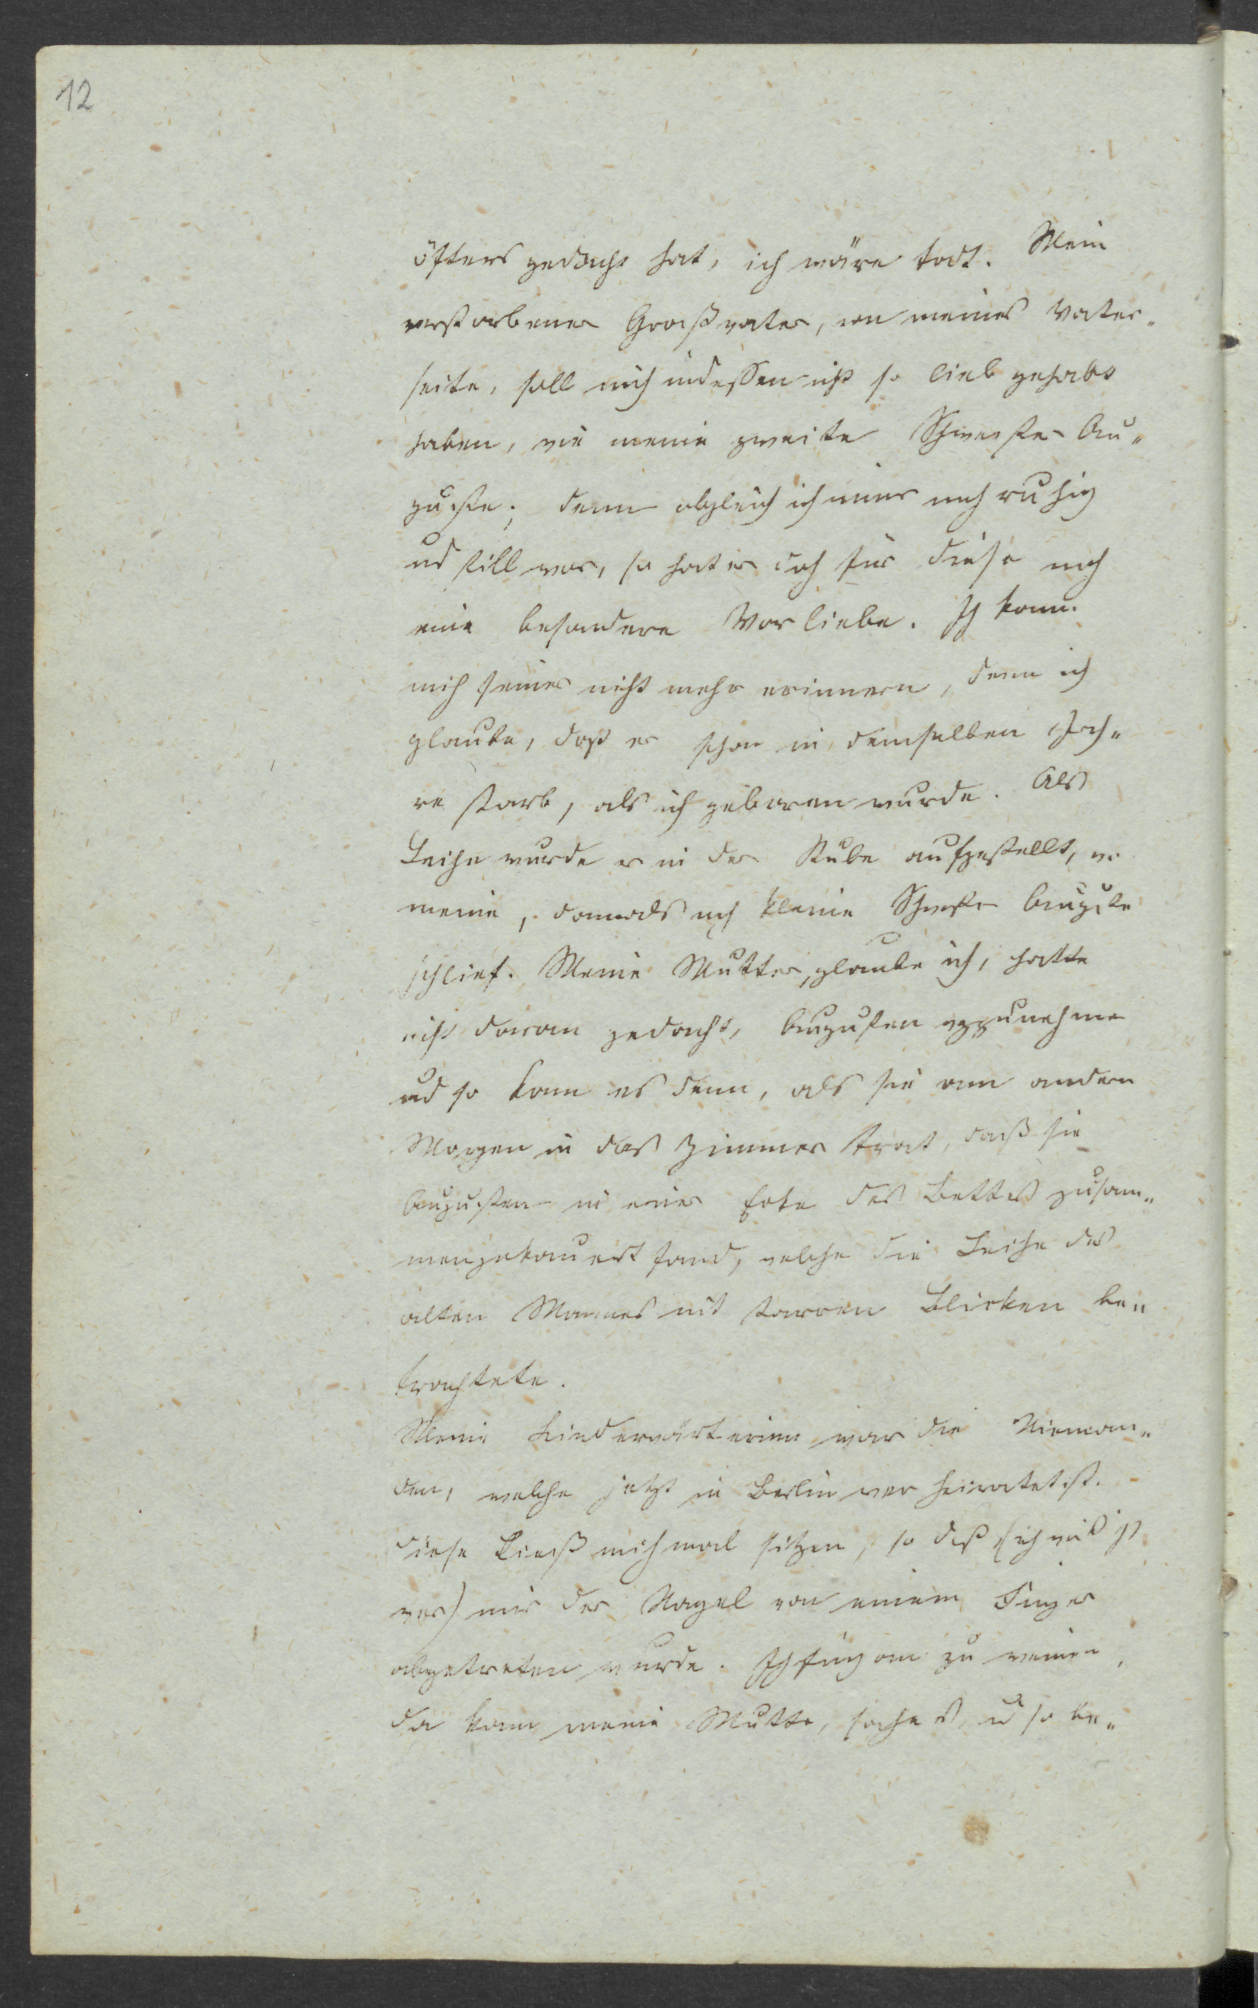 12
öfters gedacht hat, ich wäre todt. Mein
verstorbener Großvater, von meines Vater-
seite, soll mich indessen nicht so lieb gehabt
haben, wie meine zweite Schwester Au-
guste; denn obgleich ich immer noch ruhig
und still war, so hat er doch für diese noch
eine besondere Vorliebe. Ich kann
mich seiner nicht mehr erinnern, denn ich
glaube, daß er schon in demselben Jah-
re starb, als ich geboren wurde. Als
Leiche wurde er in der Stube aufgestellt, wo
meine, damals noch kleine Schwester Auguste
schlief. Meine Mutter, glaube ich, hatte
nicht daran gedacht, Augusten wegzunehmen
und so kam es denn, als sie am andern
Morgen in das Zimmer trat, daß sie
Augusten in einer Ecke des Bettes zusam-
mengekauert fand, welche die Leiche des
alten Mannes mit starren Blicken be-
trachtete.
Meine Kinderwärterinn war die Nieman-
den, welche jetzt in Berlin verheiratet ist.
Diese ließ mich mal sitzen, so daß (ich
war) mir der Nagel von einem Finger
abgetreten wurde. Ich fing an zu weinen,
da kam meine Mutter, sahe es, und so be-